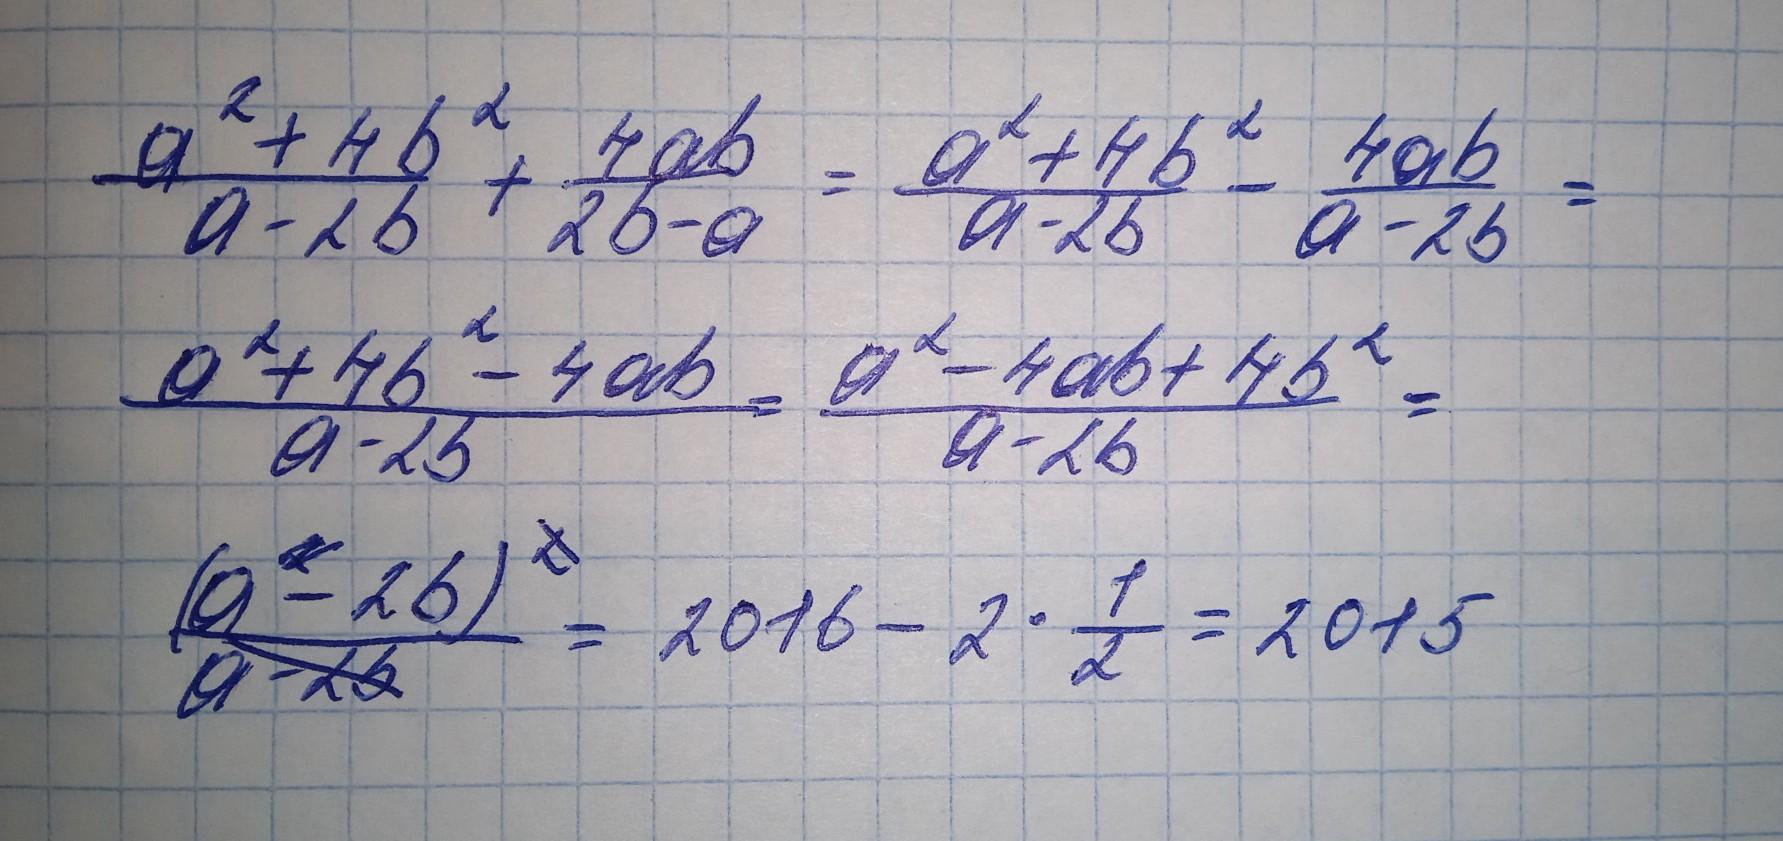 (a² + 4b²)/(a - 2b) + 4ab/(2b - a) = (a² + 4b²)/(a - 2b) - 4ab/(a - 2b) =
(a² + 4b² - 4ab)/(a - 2b) = (a² - 4ab + 4b²)/(a - 2b) =
(a - 2b)²/(a - 2b) = 2016 - 2 · 1/2 = 2015